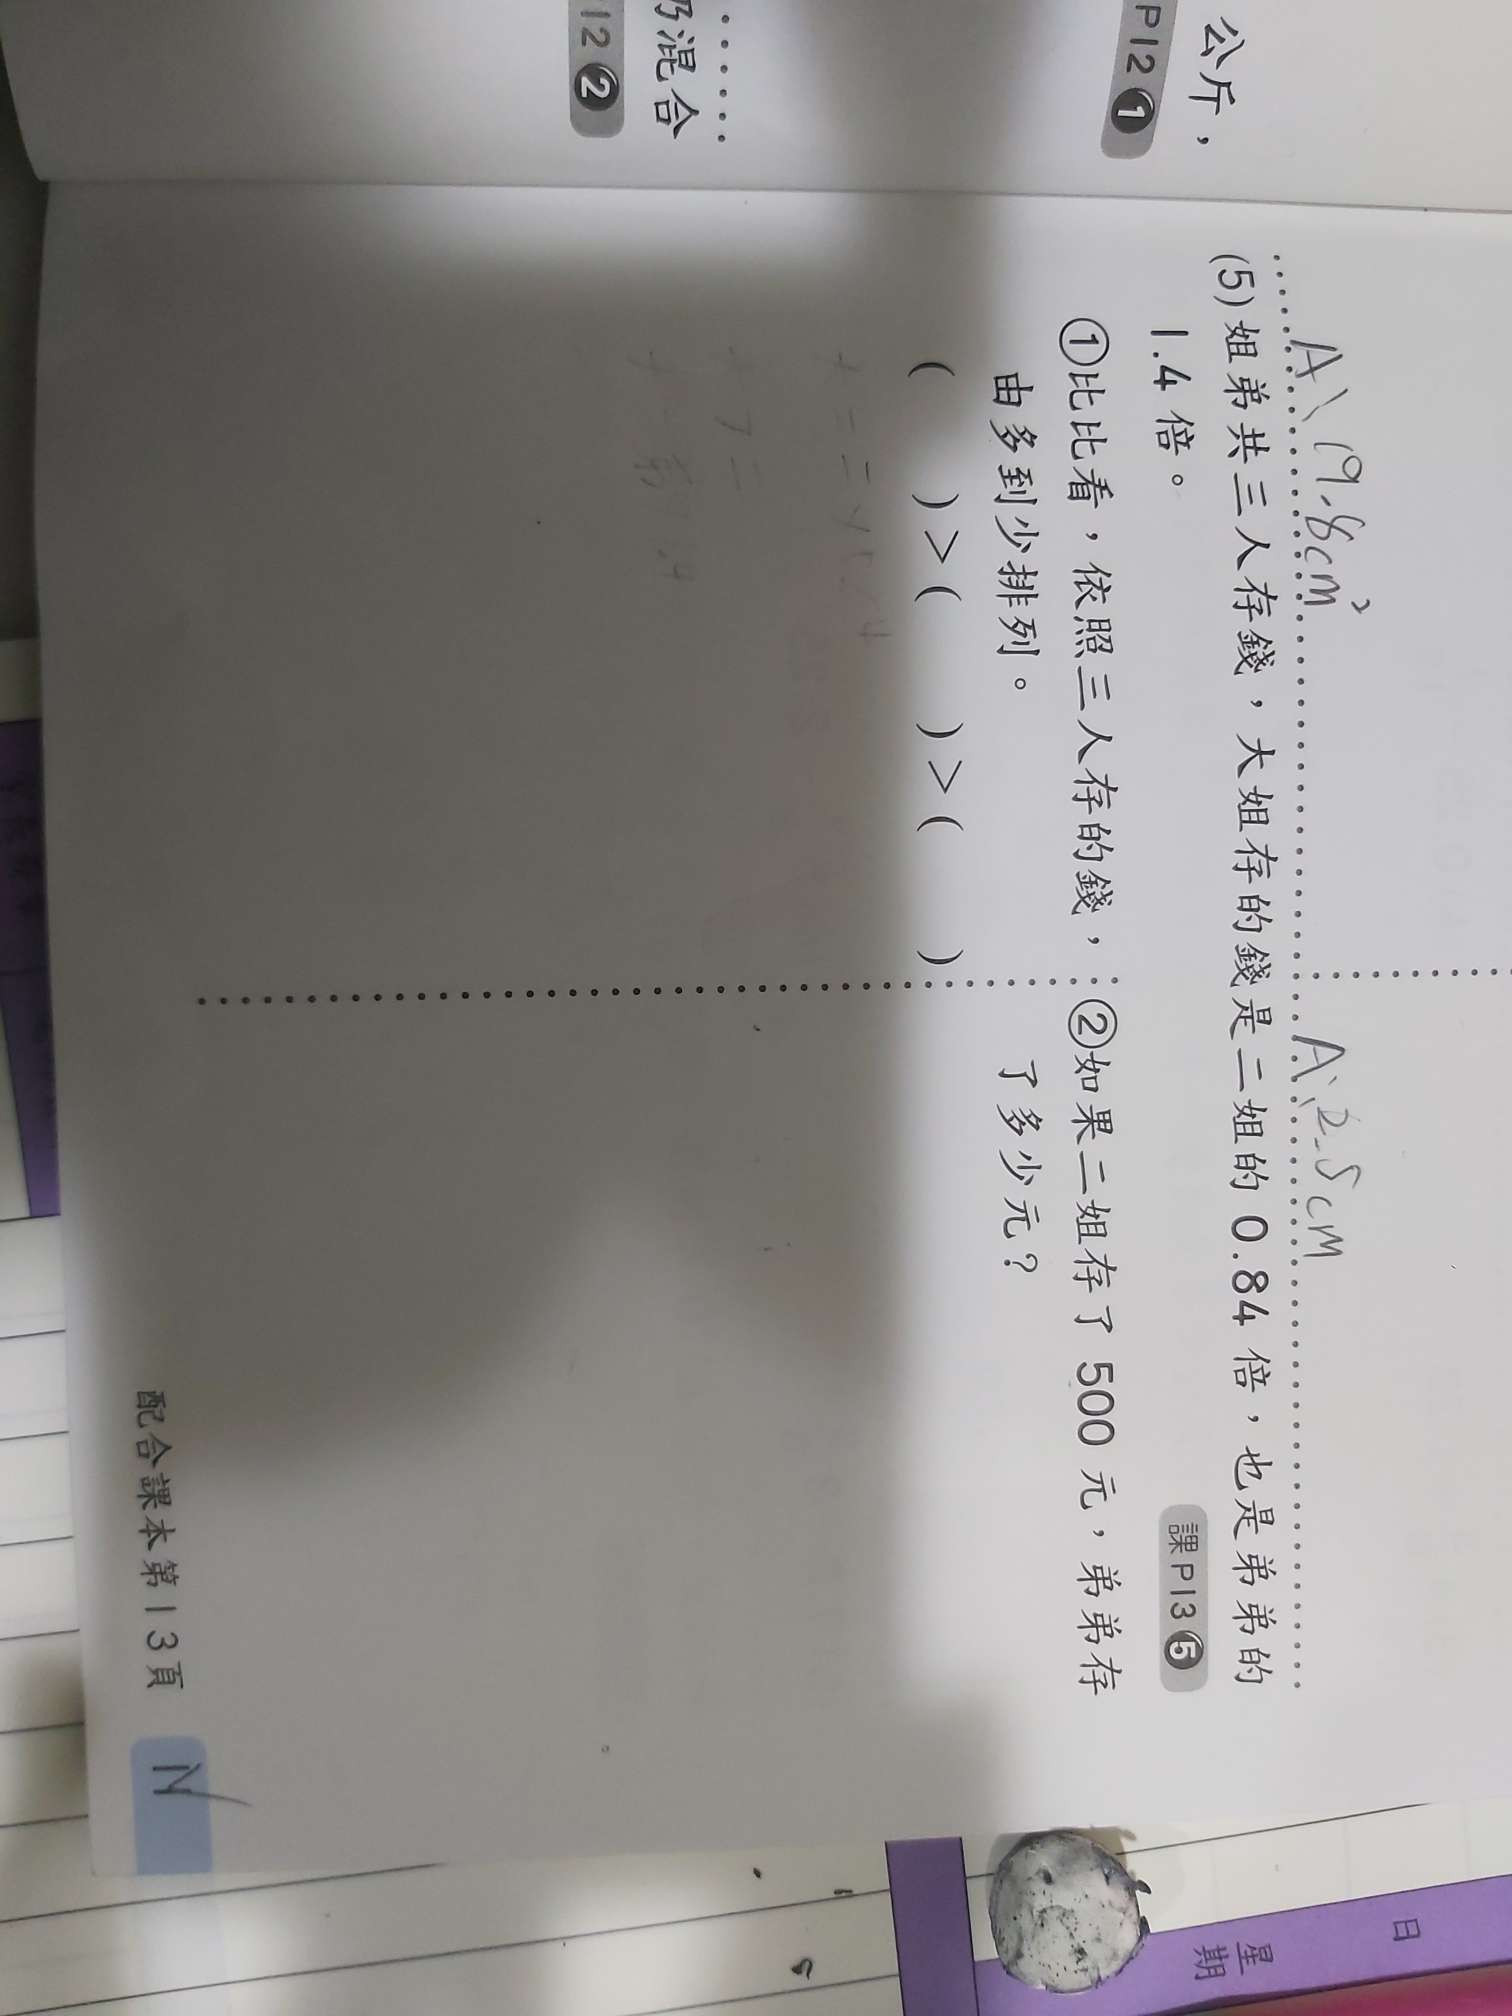 公斤，
P12 1
奶混合
12 2
A、19.8cm²
A、2.5cm
(5)姐弟共三人存錢，大姐存的錢是二姐的 0.84 倍，也是弟弟的
1.4 倍。
課P13 5
①比比看，依照三人存的錢，
由多到少排列。
( )>( )>( )
②如果二姐存了 500 元，弟弟存
了多少元？
配合課本第13頁
日
星期